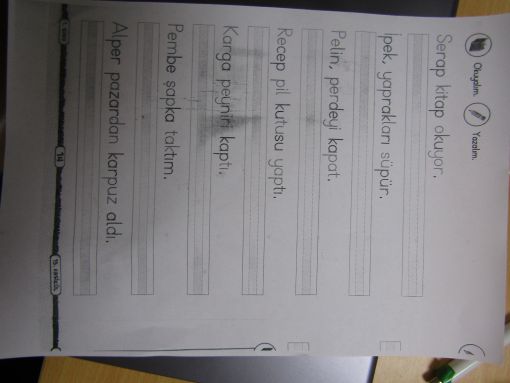 Okuyalım. Yazalım.
Serap kitap okuyor.
İpek, yaprakları süpür.
Pelin, perdeyi kapat.
Recep pil kutusu yaptı.
Karga peyniri kaptı.
Pembe şapka taktım.
Alper pazardan karpuz aldı.
14